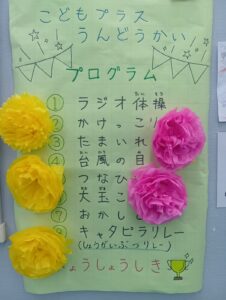 こどもプラス
うんどうかい
プログラム
① ラジオ体操
たいそう
② かけっこ
③ たまいれ
④ 台風の目
たいふう
め
つなひ
大玉こ
おかし
⑨ キャタピラリレー
(しょうがいぶつリレー)
ょうしょうしき